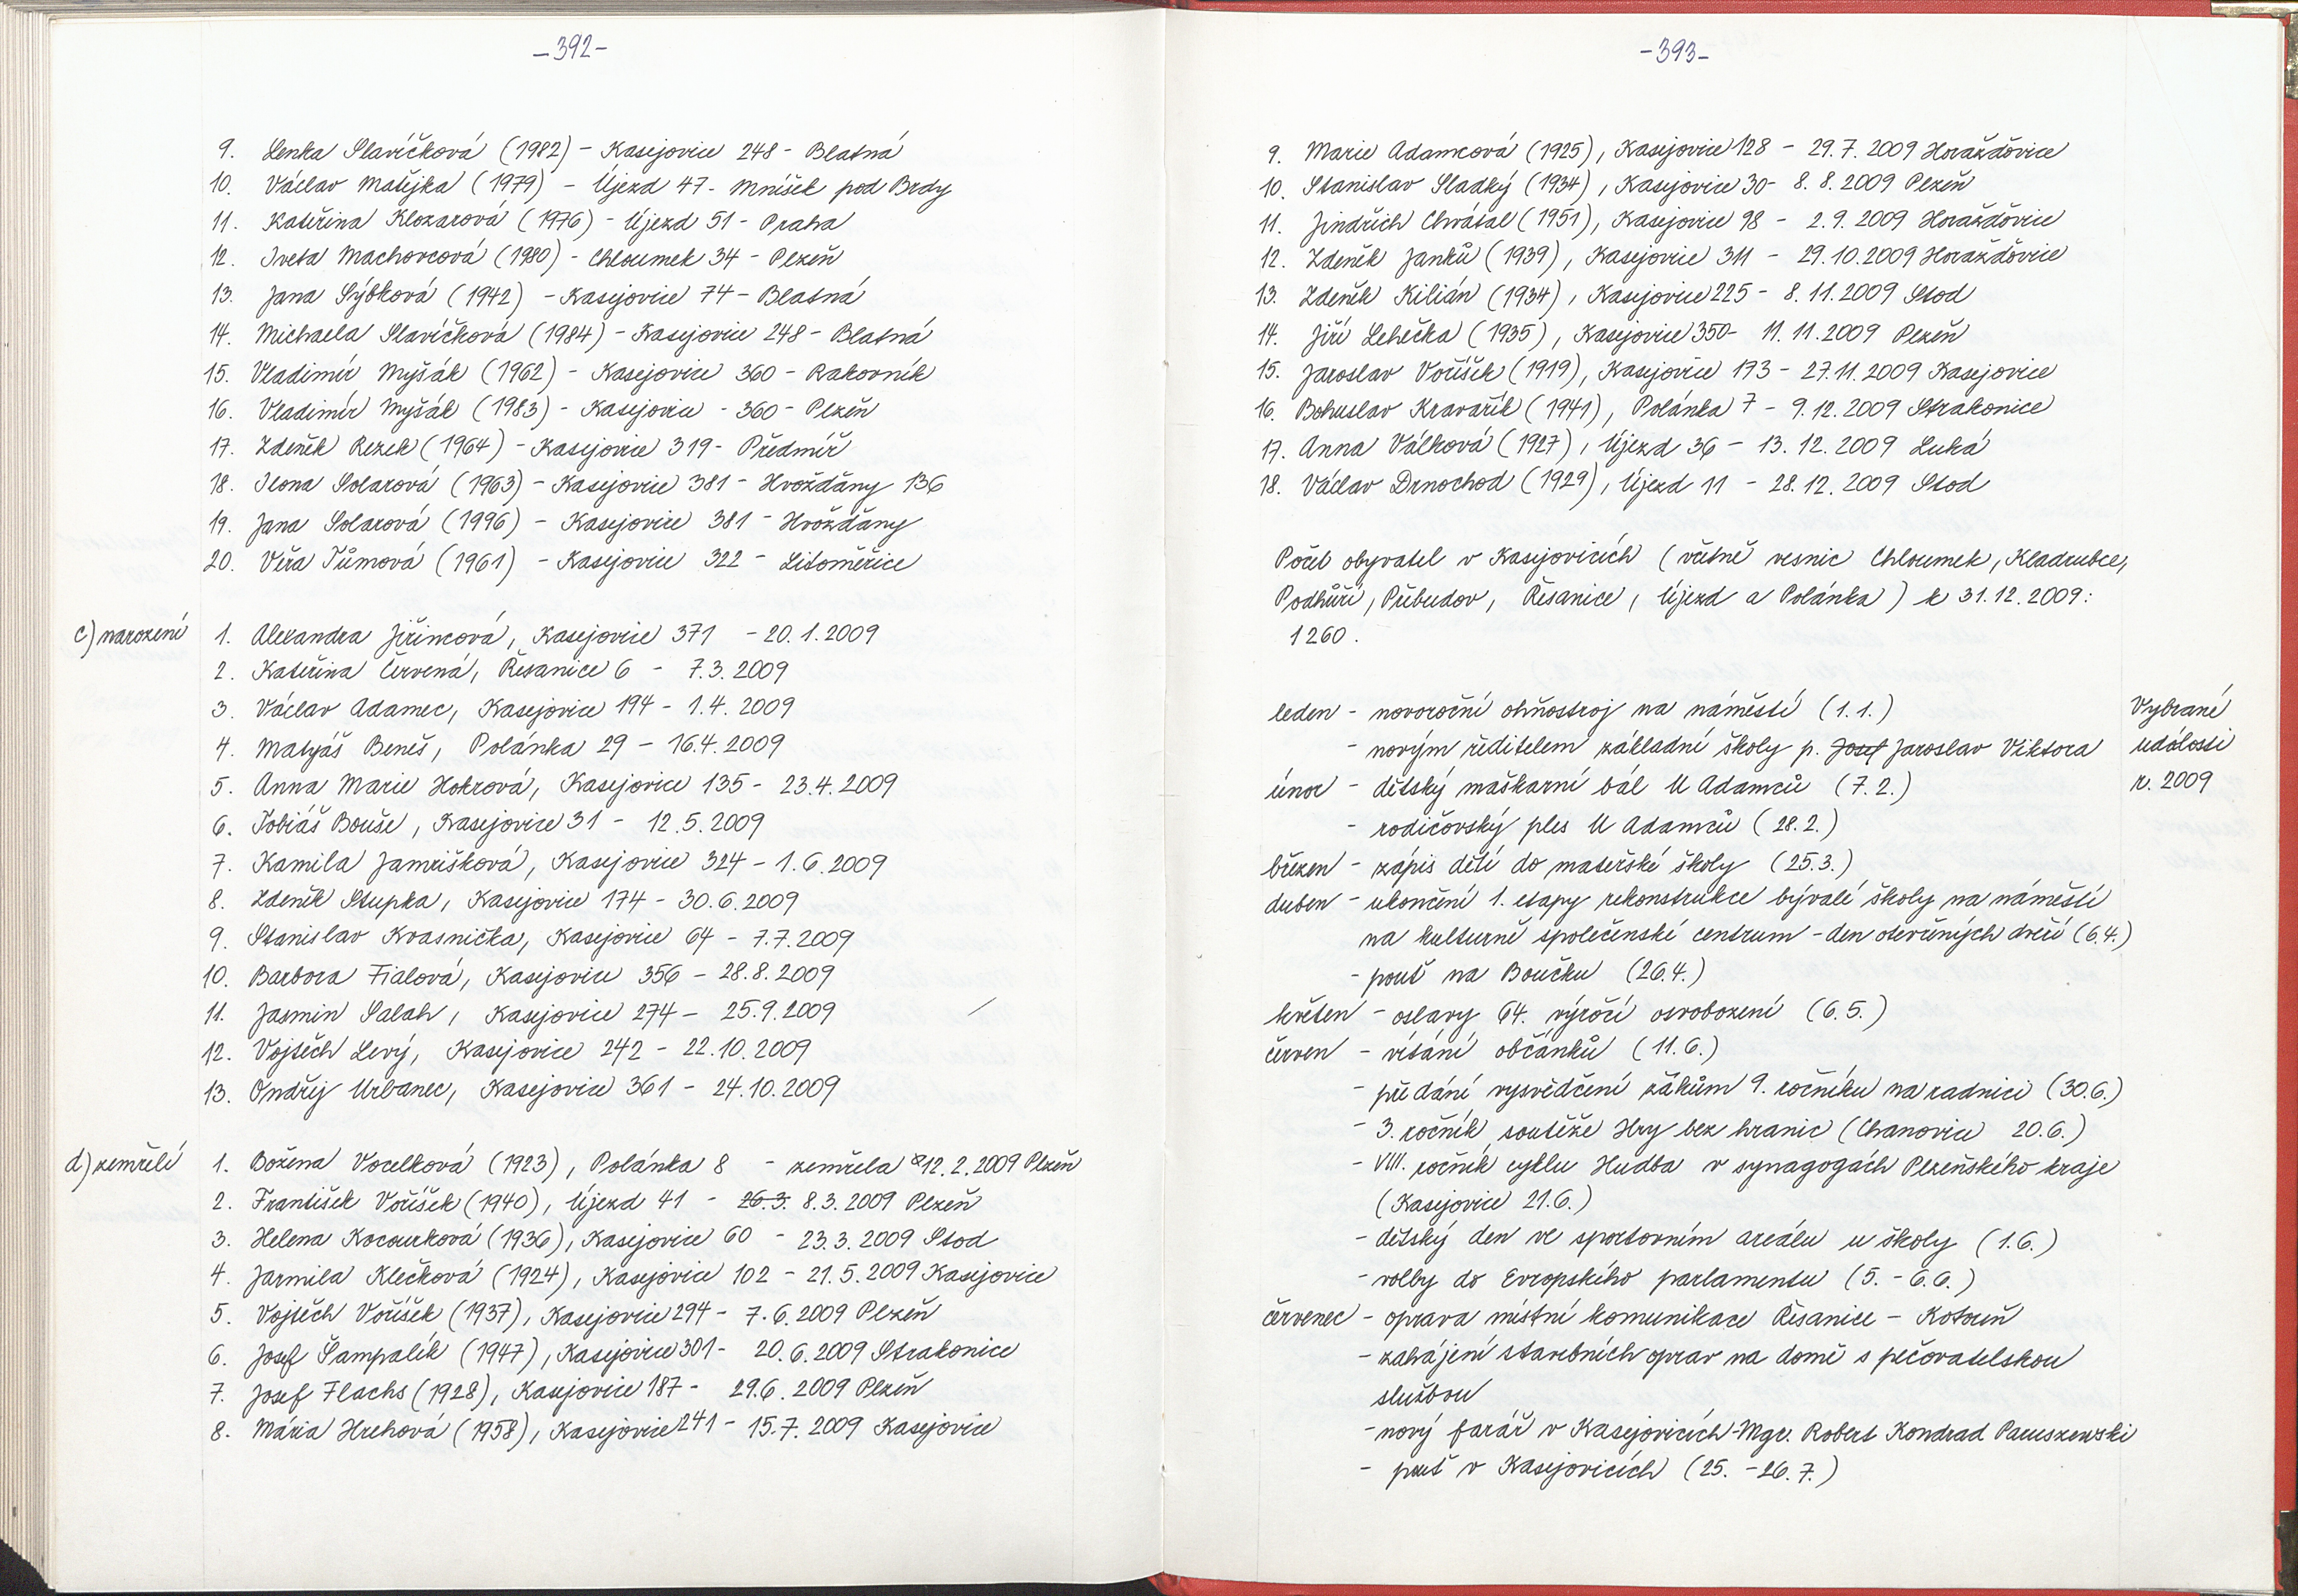 -392-
9. Lenka Slavíčková (1982) - Kasejovice 248 - Blatná
10. Václav Matějka (1979) - Újezd 47 - Mníšek pod Brdy
11. Kateřina Klozarová (1976) - Újezd 51 - Praha
12. Iveta Machovcová (1980) - Chloumek 34 - Plzeň
13. Jana Sýbková (1942) - Kasejovice 74 - Blatná
14. Michaela Slavíčková (1984) - Kasejovice 248 - Blatná
15. Vladimír Myšák (1962) - Kasejovice 360 - Rakovník
16. Vladimír Myšák (1983) - Kasejovice - 360 - Plzeň
17. Zdeněk Rezek (1964) - Kasejovice 319 - Předmíř
18. Ilona Solarová (1963) - Kasejovice 381 - Hvožďany 136
19. Jana Solarová (1996) - Kasejovice 381 - Hvožďany
20. Věra Tůmová (1961) - Kasejovice 322 - Litoměřice
c) narození 1. Alexandra Jiřincová, Kasejovice 371 - 20.1.2009
2. Kateřina Červená, Řesanice 6 - 7.3.2009
3. Václav Adamec, Kasejovice 194 - 1.4.2009
4. Matyáš Beneš, Polánka 29 - 16.4.2009
5. Anna Marie Hokrová, Kasejovice 135 - 23.4.2009
6. Tobiáš Bouše, Kasejovice 31 - 12.5.2009
7. Kamila Jamrišková, Kasejovice 324 - 1.6.2009
8. Zdeněk Stupka, Kasejovice 174 - 30.6.2009
9. Stanislav Kvasnička, Kasejovice 64 - 7.7.2009
10. Barbora Fialová, Kasejovice 356 - 28.8.2009
11. Jasmin Salah, Kasejovice 274 - 25.9.2009
12. Vojtěch Levý, Kasejovice 242 - 22.10.2009
13. Ondřej Urbanec, Kasejovice 361 - 24.10.2009
d) zemřelí 1. Božena Vocelková (1923), Polánka 8 - zemřela 12.2.2009 Plzeň
2. František Voříšek (1940), Újezd 41 - 26.3. 8.3.2009 Plzeň
3. Helena Kocourková (1936), Kasejovice 60 - 23.3.2009 Stod
4. Jarmila Klečková (1924), Kasejovice 102 - 21.5.2009 Kasejovice
5. Vojtěch Voříšek (1937), Kasejovice 294 - 7.6.2009 Plzeň
6. Josef Šampalík (1947), Kasejovice 301 - 20.6.2009 Strakonice
7. Josef Flachs (1928), Kasejovice 187 - 29.6.2009 Plzeň
8. Mária Hrehová (1958), Kasejovice 241 - 15.7.2009 Kasejovice
-393-
9. Marie Adamcová (1925), Kasejovice 128 - 29.7.2009 Horažďovice
10. Stanislav Sladký (1934), Kasejovice 30 - 8.8.2009 Plzeň
11. Jindřich Chvátal (1951), Kasejovice 98 - 2.9.2009 Horažďovice
12. Zdeněk Janků (1939), Kasejovice 311 - 29.10.2009 Horažďovice
13. Zdeněk Kilián (1934), Kasejovice 225 - 8.11.2009 Stod
14. Jiří Lehečka (1935), Kasejovice 350 - 11.11.2009 Plzeň
15. Jaroslav Voříšek (1919), Kasejovice 173 - 27.11.2009 Kasejovice
16. Bohuslav Kravařík (1941), Polánka 7 - 9.12.2009 Strakonice
17. Anna Válková (1927), Újezd 36 - 13.12.2009 Luká
18. Václav Drnochod (1929), Újezd 11 - 28.12.2009 Stod
Počet obyvatel v Kasejovicích (včetně vesnic Chloumek, Kladrubce,
Podhůří, Přebudov, Řesanice, Újezd a Polánka) k 31.12.2009:
1260.
leden - novoroční ohňostroj na náměstí (1.1.) Vybrané
- novým ředitelem základní školy p. Josef Jaroslav Viktora události
únor - dětský maškarní bál U Adamců (7.2.) r. 2009
- rodičovský ples U Adamců (28.2.)
březen - zápis dětí do mateřské školy (25.3.)
duben - ukončení 1. etapy rekonstrukce bývalé školy na náměstí
na kulturně společenské centrum - den otevřených dveří (6.4.)
- pouť na Boučku (26.4.)
květen - oslavy 64. výročí osvobození (6.5.)
červen - vítání občánků (11.6.)
- předání vysvědčení žákům 9. ročníku na radnici (30.6.)
- 3. ročník soutěže Hry bez hranic (Chanovice 20.6.)
- VIII. ročník cyklu Hudba v synagogách Plzeňského kraje
(Kasejovice 21.6.)
- dětský den ve sportovním areálu u školy (1.6.)
- volby do Evropského parlamentu (5. - 6.6.)
červenec - oprava místní komunikace Řesanice - Kotouň
- zahájení stavebních oprav na domě s pečovatelskou
službou
- nový farář v Kasejovicích - Mgr. Robert Kondrad Paruszewski
- pouť v Kasejovicích (25. - 26.7.)